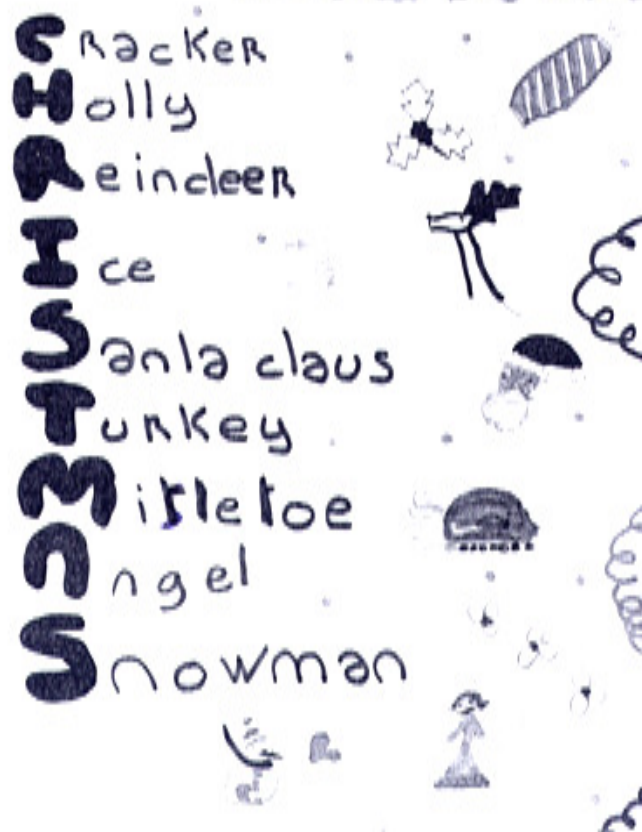 Cracker
Holly
Reindeer
Ice
Santa claus
Turkey
Mistletoe
Angel
Snowman